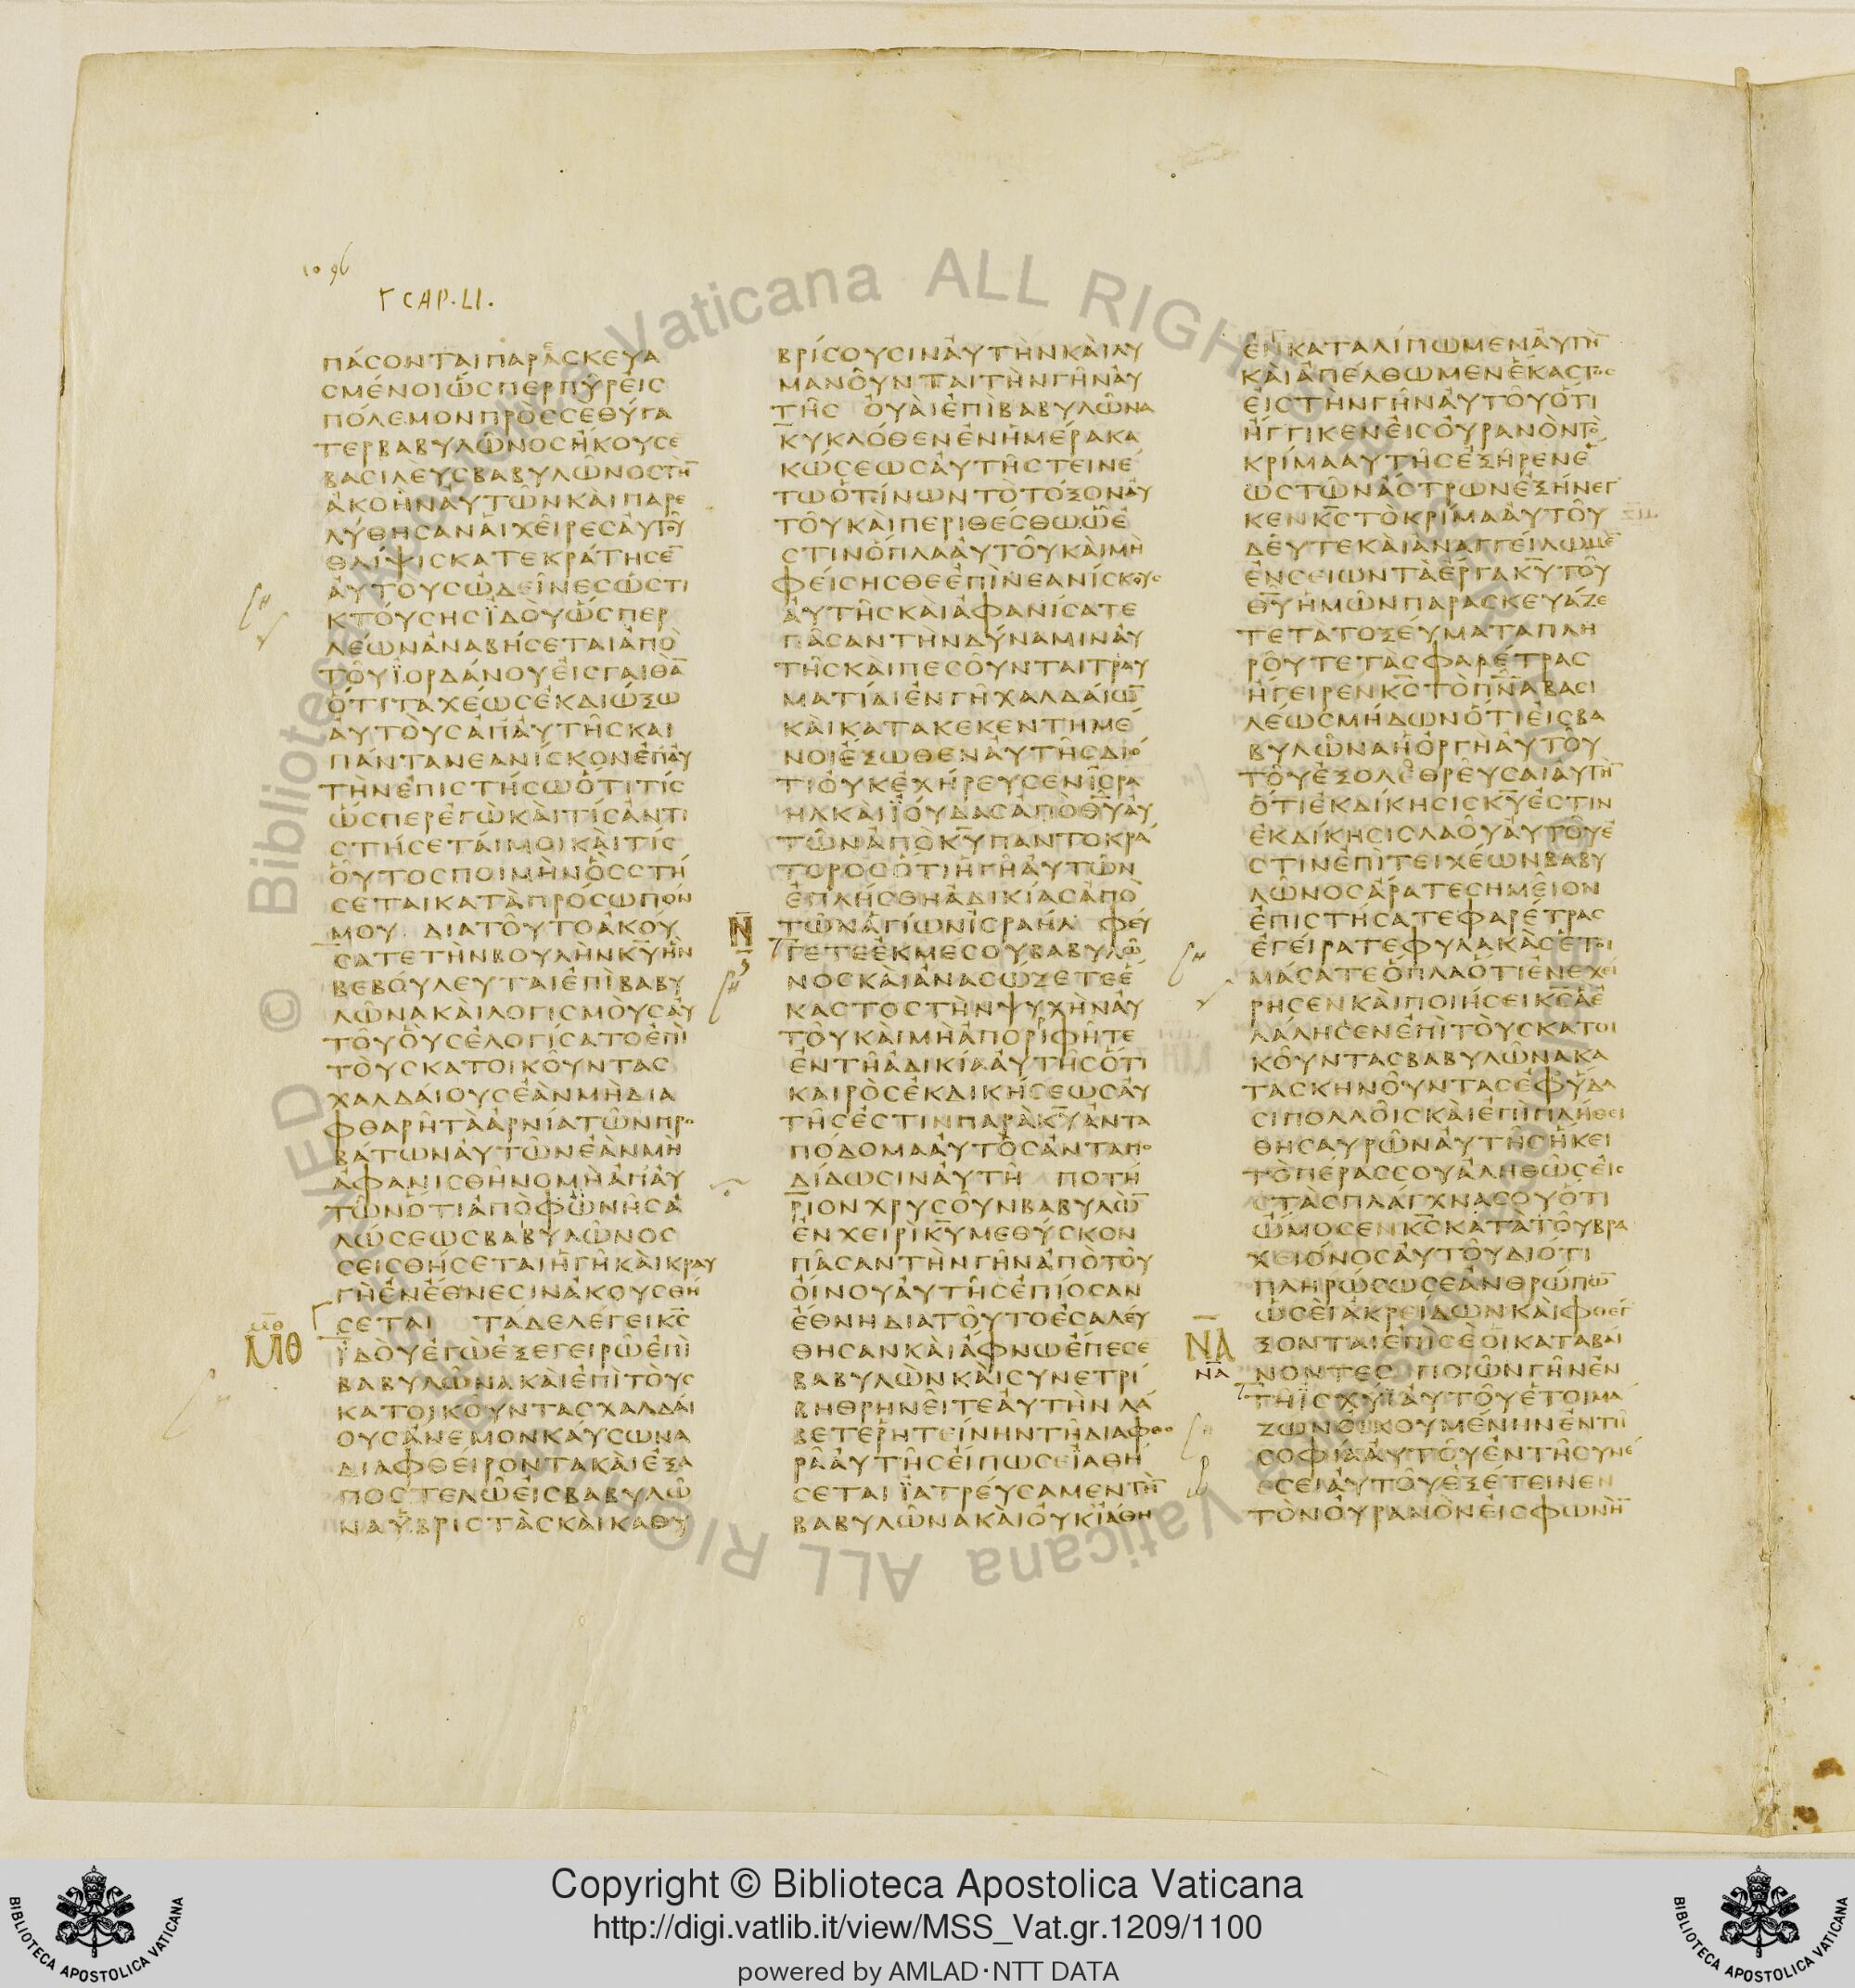 1096
Γ CAP·LI·
ΠΑΣΟΝΤΑΙΠΑΡΑΣΚΕΥΑ
ΣΜΕΝΟΙΩΣΠΕΡΠΥΡΕΙΣ
ΠΟΛΕΜΟΝΠΡΟΣΣΕΘΥΓΑ
ΤΕΡΒΑΒΥΛΩΝΟΣΗΚΟΥΣΕ
ΒΑΣΙΛΕΥΣΒΑΒΥΛΩΝΟΣΤΗ̅
ΑΚΟΗΝΑΥΤΩΝΚΑΙΠΑΡΕ
ΛΥΘΗΣΑΝΑΙΧΕΙΡΕΣΑΥΤΟΥ
ΘΛΙΨΙΣΚΑΤΕΚΡΑΤΗΣΕ̅
ΑΥΤΟΥΣΩΔΕΙΝΕΣΩΣΤΙ
ΚΤΟΥΣΗΣΪΔΟΥΩΣΠΕΡ
ΛΕΩΝΑΝΑΒΗΣΕΤΑΙΑΠΟ
ΤΟΥΪΟΡΔΑΝΟΥΕΙΣΓΑΙΘΑ̅
ΟΤΙΤΑΧΕΩΣΕΚΔΙΩΞΩ
ΑΥΤΟΥΣΑΠΑΥΤΗΣΚΑΙ
ΠΑΝΤΑΝΕΑΝΙΣΚΟΝΕΠΑΥ
ΤΗΝΕΠΙΣΤΗΣΩΟΤΙΤΙΣ
ΩΣΠΕΡΕΓΩΚΑΙΤΙΣΑΝΤΙ
ΣΤΗΣΕΤΑΙΜΟΙΚΑΙΤΙΣ
ΟΥΤΟΣΠΟΙΜΗΝΟΣΣΤΗ
ΣΕΤΑΙΚΑΤΑΠΡΟΣΩΠΟΝ
ΜΟΥ ΔΙΑΤΟΥΤΟΑΚΟΥ
ΣΑΤΕΤΗΝΒΟΥΛΗΝΚ̅Υ̅ΗΝ
ΒΕΒΟΥΛΕΥΤΑΙΕΠΙΒΑΒΥ
ΛΩΝΑΚΑΙΛΟΓΙΣΜΟΥΣΑΥ
ΤΟΥΟΥΣΕΛΟΓΙΣΑΤΟΕΠΙ
ΤΟΥΣΚΑΤΟΙΚΟΥΝΤΑΣ
ΧΑΛΔΑΙΟΥΣΕΑΝΜΗΔΙΑ
ΦΘΑΡΗΤΑΑΡΝΙΑΤΩΝΠΡΟ
ΒΑΤΩΝΑΥΤΩΝΕΑΝΜΗ
ΑΦΑΝΙΣΘΗΝΟΜΗΑΠΑΥ
ΤΩΝΟΤΙΑΠΟΦΩΝΗΣΑ
ΛΩΣΕΩΣΒΑΒΥΛΩΝΟΣ
ΣΕΙΣΘΗΣΕΤΑΙΗΓΗΚΑΙΚΡΑΥ
ΓΗΕΝΕΘΝΕΣΙΝΑΚΟΥΣΘΗ
ΣΕΤΑΙ ΤΑΔΕΛΕΓΕΙΚ̅Σ̅
Μ̅Θ̅
ΜΘ
ΪΔΟΥΕΓΩΕΞΕΓΕΙΡΩΕΠΙ
ΒΑΒΥΛΩΝΑΚΑΙΕΠΙΤΟΥΣ
ΚΑΤΟΙΚΟΥΝΤΑΣΧΑΛΔΑΙ
ΟΥΣΑΝΕΜΟΝΚΑΥΣΩΝΑ
ΔΙΑΦΘΕΙΡΟΝΤΑΚΑΙΕΞΑ
ΠΟΣΤΕΛΩΕΙΣΒΑΒΥΛΩ
ΝΑΥΒΡΙΣΤΑΣΚΑΙΚΑΘΥ
ΒΡΙΣΟΥΣΙΝΑΥΤΗΝΚΑΙΛΥ
ΜΑΝΟΥΝΤΑΙΤΗΝΓΗΝΑΥ
ΤΗΣ ΟΥΑΙΕΠΙΒΑΒΥΛΩΝΑ
ΚΥΚΛΟΘΕΝΕΝΗΜΕΡΑΚΑ
ΚΩΣΕΩΣΑΥΤΗΣΤΕΙΝΕ
ΤΩΟΤΙΝΩΝΤΟΤΟΞΟΝΑΥ
ΤΟΥΚΑΙΠΕΡΙΘΕΣΘΩΩΕ
ΣΤΙΝΟΠΛΑΑΥΤΟΥΚΑΙΜΗ
ΦΕΙΣΗΣΘΕΕΠΙΝΕΑΝΙΣΚΟΥΣ
ΑΥΤΗΣΚΑΙΑΦΑΝΙΣΑΤΕ
ΠΑΣΑΝΤΗΝΔΥΝΑΜΙΝΑΥ
ΤΗΣΚΑΙΠΕΣΟΥΝΤΑΙΤΡΑΥ
ΜΑΤΙΑΙΕΝΓΗΧΑΛΔΑΙΩ̅
ΚΑΙΚΑΤΑΚΕΚΕΝΤΗΜΕ
ΝΟΙΕΞΩΘΕΝΑΥΤΗΣΔΙΟ
ΤΙΟΥΚΕΧΗΡΕΥΣΕΝΙΣΡΑ
ΗΛΚΑΙΪΟΥΔΑΣΑΠΟΘ̅Υ̅ΑΥ
ΤΩΝΑΠΟΚ̅Υ̅ΠΑΝΤΟΚΡΑ
ΤΟΡΟΣΟΤΙΗΓΗΑΥΤΩΝ
ΕΠΛΗΣΘΗΑΔΙΚΙΑΣΑΠΟ
Ν̅ ΤΩΝΑΓΙΩΝΙΣΡΑΗΛ ΦΕΥ
ΓΕΤΕΕΚΜΕΣΟΥΒΑΒΥΛΩ
ΝΟΣΚΑΙΑΝΑΣΩΖΕΤΕΕ
ΚΑΣΤΟΣΤΗΝΨΥΧΗΝΑΥ
ΤΟΥΚΑΙΜΗΑΠΟΡΙΦΗΤΕ
ΕΝΤΗΑΔΙΚΙΑΑΥΤΗΣΟΤΙ
ΚΑΙΡΟΣΕΚΔΙΚΗΣΕΩΣΑΥ
ΤΗΣΕΣΤΙΝΠΑΡΑΚ̅Υ̅ΑΝΤΑ
ΠΟΔΟΜΑΑΥΤΟΣΑΝΤΑΠΟ
ΔΙΔΩΣΙΝΑΥΤΗ ΠΟΤΗ
ΡΙΟΝΧΡΥΣΟΥΝΒΑΒΥΛΩ̅
ΕΝΧΕΙΡΙΚ̅Υ̅ΜΕΘΥΣΚΟΝ
ΠΑΣΑΝΤΗΝΓΗΝΑΠΟΤΟΥ
ΟΙΝΟΥΑΥΤΗΣΕΠΙΟΣΑΝ
ΕΘΝΗΔΙΑΤΟΥΤΟΕΣΑΛΕΥ
ΘΗΣΑΝΚΑΙΑΦΝΩΕΠΕΣΕ
ΒΑΒΥΛΩΝΚΑΙΣΥΝΕΤΡΙ
ΒΗΘΡΗΝΕΙΤΕΑΥΤΗΝΛΑ
ΒΕΤΕΡΗΤΕΙΝΗΝΤΗΔΙΑΦΘΟ
ΡΑΑΥΤΗΣΕΙΠΩΣΕΙΑΘΗ
ΣΕΤΑΙΪΑΤΡΕΥΣΑΜΕΝΤΗ̅
ΒΑΒΥΛΩΝΑΚΑΙΟΥΚΙΑΘΗ
ΕΝΚΑΤΑΛΙΠΩΜΕΝΑΥΤΗ̅
ΚΑΙΑΠΕΛΘΩΜΕΝΕΚΑΣΤΟΣ
ΕΙΣΤΗΝΓΗΝΑΥΤΟΥΟΤΙ
ΗΓΓΙΚΕΝΕΙΣΟΥΡΑΝΟΝΤΟ
ΚΡΙΜΑΑΥΤΗΣΕΞΗΡΕΝΕ
ΩΣΤΩΝΑΣΤΡΩΝΕΞΗΝΕΓ
ΚΕΝΚ̅Σ̅ΤΟΚΡΙΜΑΑΥΤΟΥ
ΔΕΥΤΕΚΑΙΑΝΑΓΓΕΙΛΩΜΕ̅
ΕΝΣΕΙΩΝΤΑΕΡΓΑΚΥΤΟΥ
Θ̅Υ̅ΗΜΩΝΠΑΡΑΣΚΕΥΑΖΕ
ΤΕΤΑΤΟΞΕΥΜΑΤΑΠΛΗ
ΡΟΥΤΕΤΑΣΦΑΡΕΤΡΑΣ
ΗΓΕΙΡΕΝΚ̅Σ̅ΤΟΠ̅Ν̅Α̅ΒΑΣΙ
ΛΕΩΣΜΗΔΩΝΟΤΙΕΙΣΒΑ
ΒΥΛΩΝΑΗΟΡΓΗΑΥΤΟΥ
ΤΟΥΕΞΟΛΕΘΡΕΥΣΑΙΑΥΤΗ̅
ΟΤΙΕΚΔΙΚΗΣΙΣΚ̅Υ̅ΕΣΤΙΝ
ΕΚΔΙΚΗΣΙΣΛΑΟΥΑΥΤΟΥΕ
ΣΤΙΝΕΠΙΤΕΙΧΕΩΝΒΑΒΥ
ΛΩΝΟΣΑΡΑΤΕΣΗΜΕΙΟΝ
ΕΠΙΣΤΗΣΑΤΕΦΑΡΕΤΡΑΣ
ΕΓΕΙΡΑΤΕΦΥΛΑΚΑΣΕΤΟΙ
ΜΑΣΑΤΕΟΠΛΑΟΤΙΕΝΕΧΕΙ
ΡΗΣΕΝΚΑΙΠΟΙΗΣΕΙΚ̅Σ̅ΑΕ
ΛΑΛΗΣΕΝΕΠΙΤΟΥΣΚΑΤΟΙ
ΚΟΥΝΤΑΣΒΑΒΥΛΩΝΑΚΑ
ΤΑΣΚΗΝΟΥΝΤΑΣΕΦΥΔΑ
ΣΙΠΟΛΛΟΙΣΚΑΙΕΠΙΠΛΗΘΕΙ
ΘΗΣΑΥΡΩΝΑΥΤΗΣΗΚΕΙ
ΤΟΠΕΡΑΣΣΟΥΑΛΗΘΩΣΕΙΣ
ΣΤΑΣΠΛΑΓΧΝΑΣΟΥΟΤΙ
ΩΜΟΣΕΝΚ̅Σ̅ΚΑΤΑΤΟΥΒΡΑ
ΧΕΙΟΝΟΣΑΥΤΟΥΔΙΟΤΙ
ΠΛΗΡΩΣΩΣΕΑΝΘΡΩΠΩ̅
ΩΣΕΙΑΚΡΕΙΔΩΝΚΑΙΦΘΕΓ
ΝΑ ΞΟΝΤΑΙΕΠΙΣΕΟΙΚΑΤΑΒΑΙ
Ν̅Α̅ ΝΟΝΤΕΣ ΠΟΙΩΝΓΗΝΕΝ
ΤΗΪΣΧΥΪΑΥΤΟΥΕΤΟΙΜΑ
ΖΩΝΟΙΚΟΥΜΕΝΗΝΕΝΤΗ
ΣΟΦΙΑΑΥΤΟΥΕΝΤΗΣΥΝΕ
ΣΕΙΑΥΤΟΥΕΞΕΤΕΙΝΕΝ
ΤΟΝΟΥΡΑΝΟΝΕΙΣΦΩΝΗ̅
© Biblioteca Apostolica Vaticana ALL RIGHTS RESERVED
Copyright © Biblioteca Apostolica Vaticana
http://digi.vatlib.it/view/MSS_Vat.gr.1209/1100
powered by AMLAD·NTT DATA
BIBLIOTECA APOSTOLICA VATICANA
BIBLIOTECA APOSTOLICA VATICANA